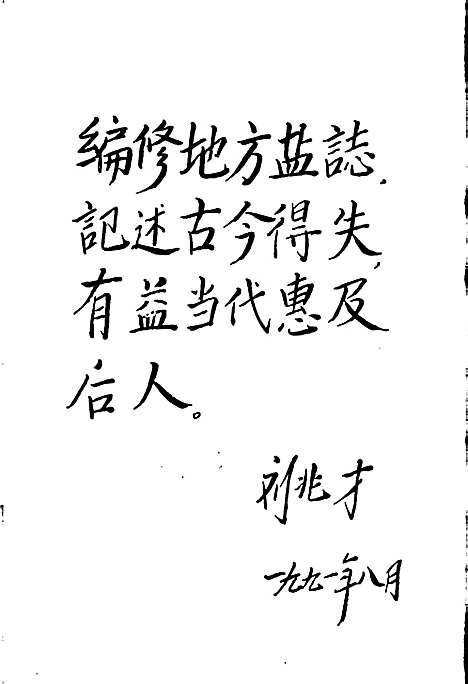 编修地方盐誌，
记述古今得失，
有益当代惠及
后人。
刘兆才
一九九一年八月